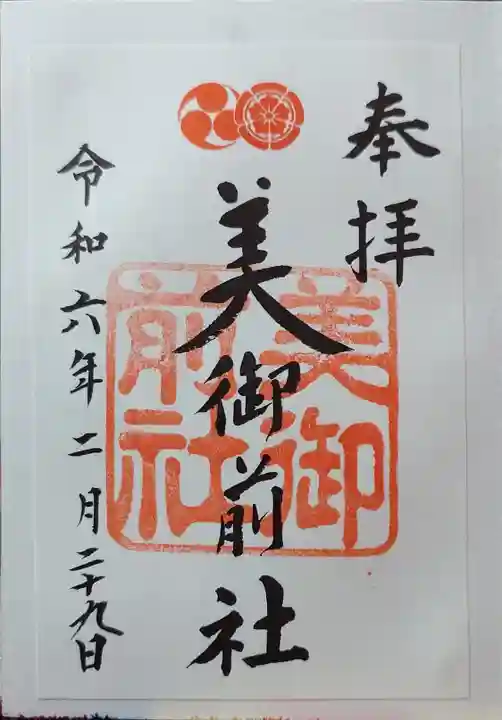 奉拝
美御前社
美御
前社
令和六年二月二十九日